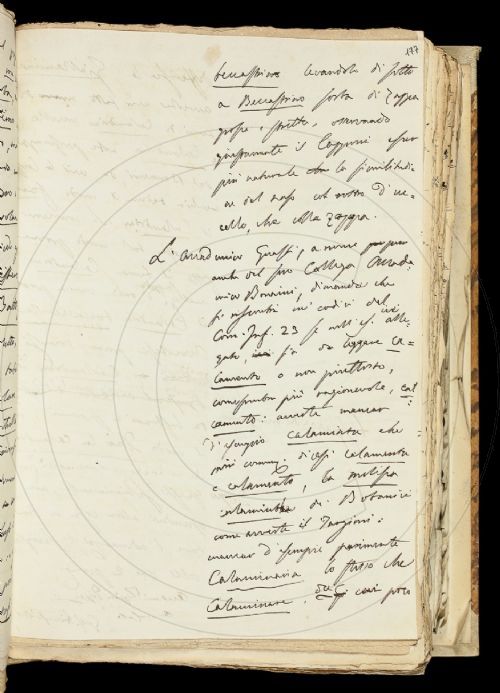 177
beccastrino levandola di sotto
a Beccastrino sorta di Zappa
grossa, e stretta, osservando
giustamente il Capponi esser
più naturale la similitudi-
ne del naso col rostro d'uc-
cello, che colla zappa.
L'Accademico Grassi, a nome
anche del suo Collega Accade-
mico Bonaini, dimanda che
si riscontri ne' codici del
Com. Inf. 23 se nell'es. ivi alle-
gato, si da leggere Ca-
lamento o non piuttosto,
come sembra più ragionevole, cal-
camento: avverte mancar
d'esempio calaminta che
più comun. dicesi calamenta
e calamento, la melissa
calamintha de' Botanici
come avverte il Targioni:
mancar d'esempio parimente
Calaminaria lo stesso che
Calaminare, di cui pure